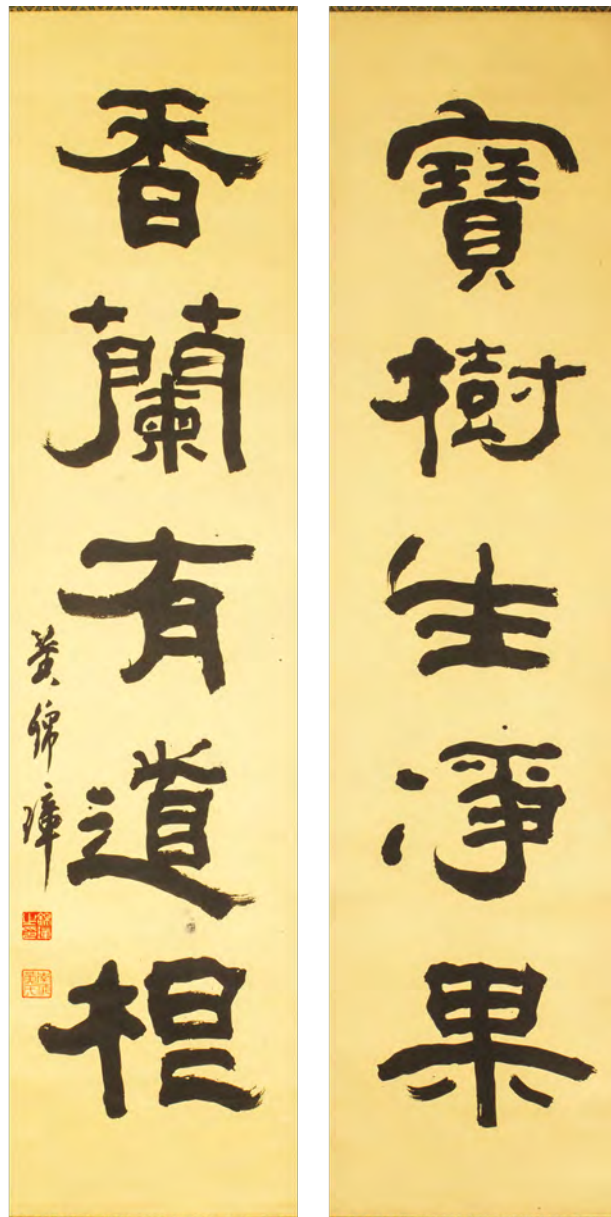 寶樹生凈果
香蘭有道根
黃錦璋